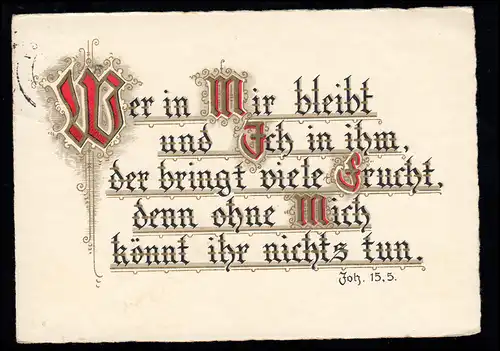 Wer in Mir bleibt
und Ich in ihm,
der bringt viele Frucht,
denn ohne Mich
könnt ihr nichts tun.
Joh. 15,5.